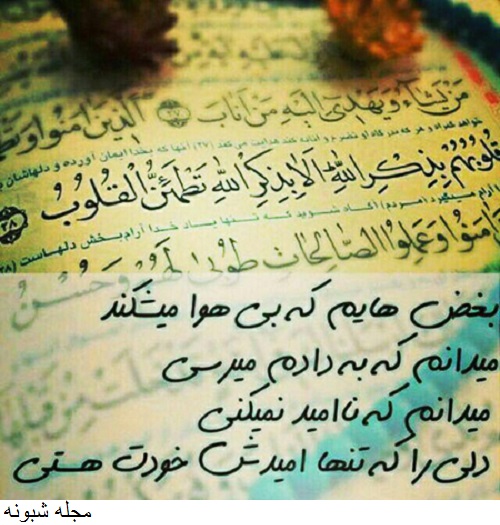 مَن يَشَاءُ وَيَهْدِي إِلَيْهِ مَنْ أَنَابَ ﴿٢٧﴾ الَّذِينَ آمَنُوا وَتَطْ
قُلُوبُهُم بِذِكْرِ اللَّهِ أَلَا بِذِكْرِ اللَّهِ تَطْمَئِنُّ الْقُلُوبُ ﴿٢٨﴾
تنها یاد خدا آرام بخش دلهاست (٢٨
آمَنُوا وَعَمِلُوا الصَّالِحَاتِ طُوبَىٰ لَهُمْ وَحُسْنُ
بغض هایم که بی هوا میشکند
میدانم که به دادم میرسی
میدانم که ناامید نمیکنی
دلی را که تنها امیدش خودت هستی
مجله شبونه